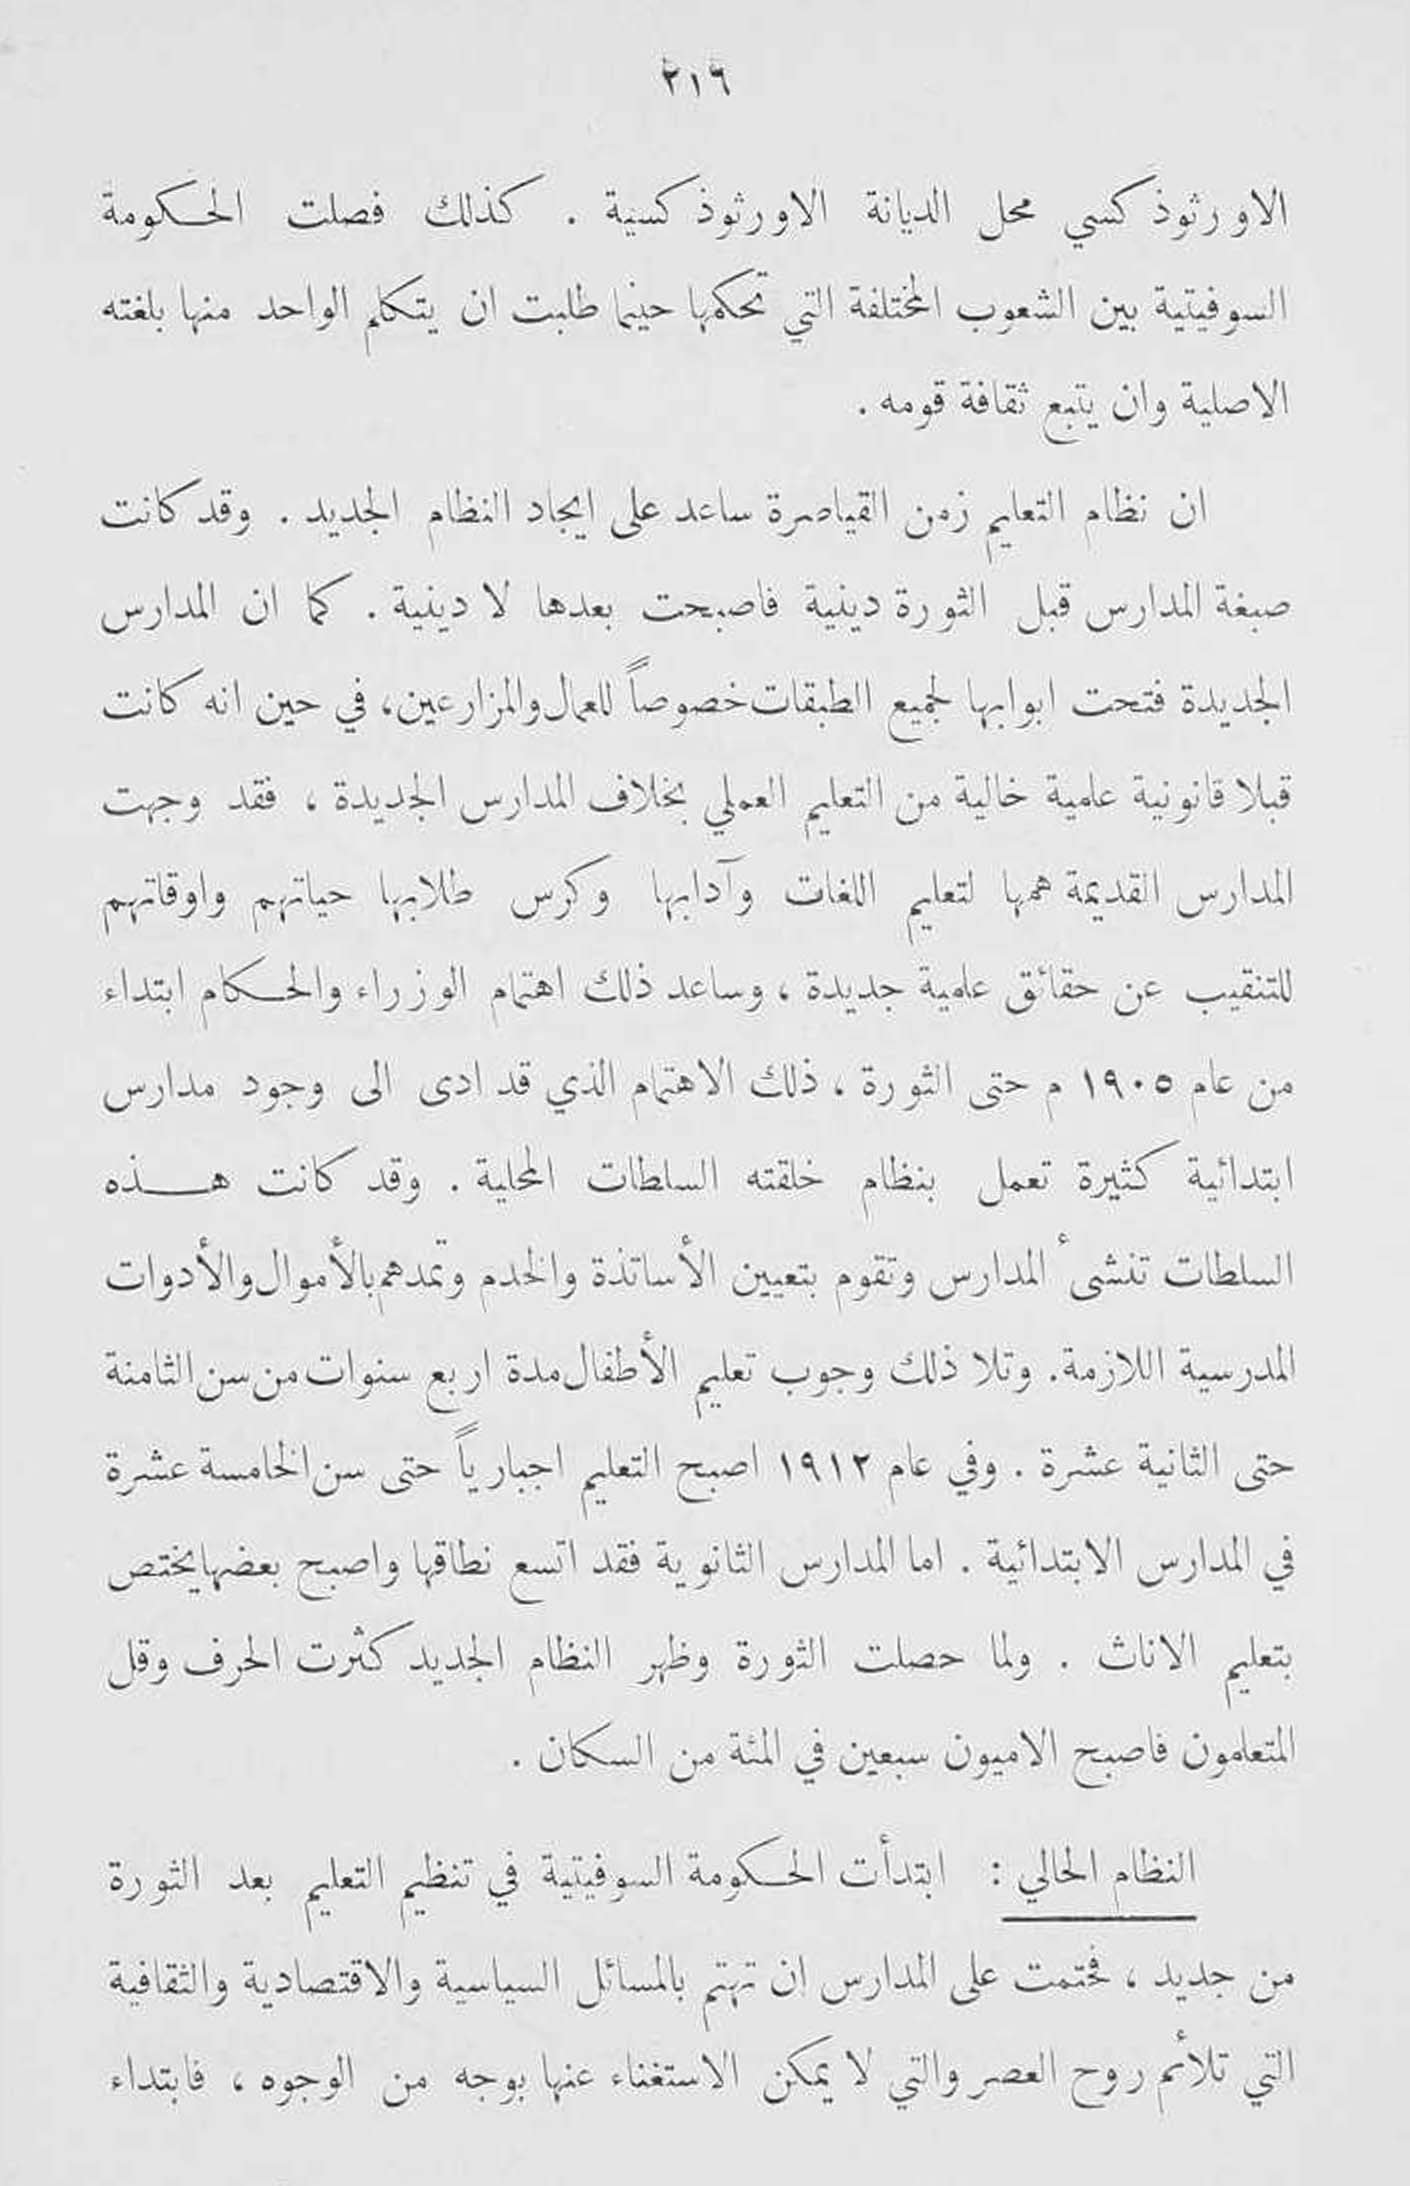 ٢١٦
الاورثوذكسي محل الديانة الاورثوذكسية . كذلك فصلت الحكومة
السوفيتية بين الشعوب المختلفة التي تحكمها حينما طلبت ان يتكلم الواحد منها بلغته
الاصلية وان يتبع ثقافة قومه .
ان نظام التعليم زمن القياصرة ساعد على ايجاد النظام الجديد . وقد كانت
صبغة المدارس قبل الثورة دينية فاصبحت بعدها لا دينية . كما ان المدارس
الجديدة فتحت ابوابها لجميع الطبقات خصوصاً للعمال والمزارعين، في حين انه كانت
قبلا قانونية علمية خالية من التعليم العملي بخلاف المدارس الجديدة ، فقد وجهت
المدارس القديمة همها لتعليم اللغات وآدابها وكرس طلابها حياتهم واوقاتهم
للتنقيب عن حقائق علمية جديدة ، وساعد ذلك اهتمام الوزراء والحكام ابتداء
من عام ١٩٠٥ م حتى الثورة ، ذلك الاهتمام الذي قد ادى الى وجود مدارس
ابتدائية كثيرة تعمل بنظام خلقته السلطات المحلية . وقد كانت هذه
السلطات تنشىء المدارس وتقوم بتعيين الأساتذة والخدم وتمدهم بالأموال والأدوات
المدرسية اللازمة. وتلا ذلك وجوب تعليم الأطفال مدة اربع سنوات من سن الثامنة
حتى الثانية عشرة . وفي عام ١٩١٢ اصبح التعليم اجبارياً حتى سن الخامسة عشرة
في المدارس الابتدائية . اما المدارس الثانوية فقد اتسع نطاقها واصبح بعضها يختص
بتعليم الاناث . ولما حصلت الثورة وظهر النظام الجديد كثرت الحرف وقل
المتعلمون فاصبح الاميون سبعين في المئة من السكان .
النظام الحالي : ابتدأت الحكومة السوفيتية في تنظيم التعليم بعد الثورة
من جديد ، فحتمت على المدارس ان تهتم بالمسائل السياسية والاقتصادية والثقافية
التي تلائم روح العصر والتي لا يمكن الاستغناء عنها بوجه من الوجوه ، فابتداء